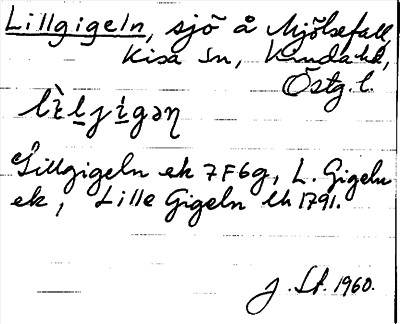 Lillgigeln, sjö å Mjölsefall,
Kisa sn, Kinda hd,
Östg. l.
lìljigəη
Lillgigeln ek 7F6g, L. Gigeln
ek, Lille Gigeln lk 1791.
J. St. 1960.